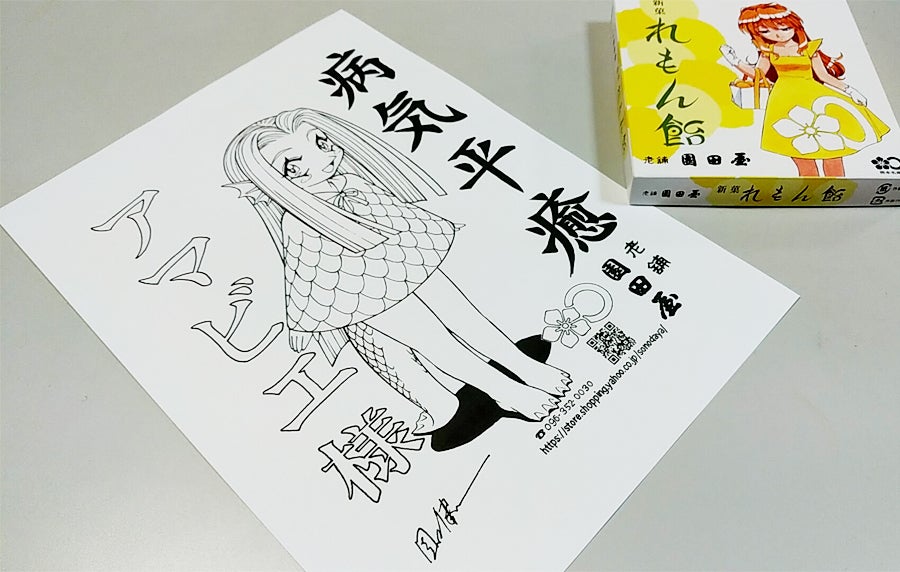 病気平癒
アマビエ様
老舗
園田屋
☎096-352-0030
https://store.shopping.yahoo.co.jp/sonodaya/
新菓
れもん飴
老舗 園田屋
老舗 園田屋 新菓 れもん飴